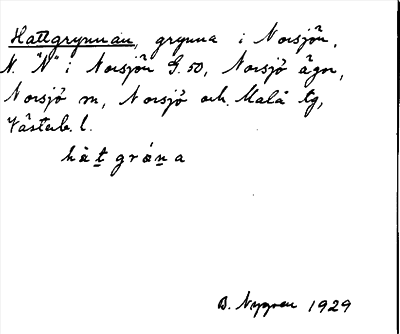 Hattgrynnan, grynna i Norsjön,
N. "N" i Norsjön G. 50, Norsjö ägor,
Norsjö sn, Norsjö och Malå tg,
Västerb. l.
hàt̠grán̠a
B. Nygren 1929